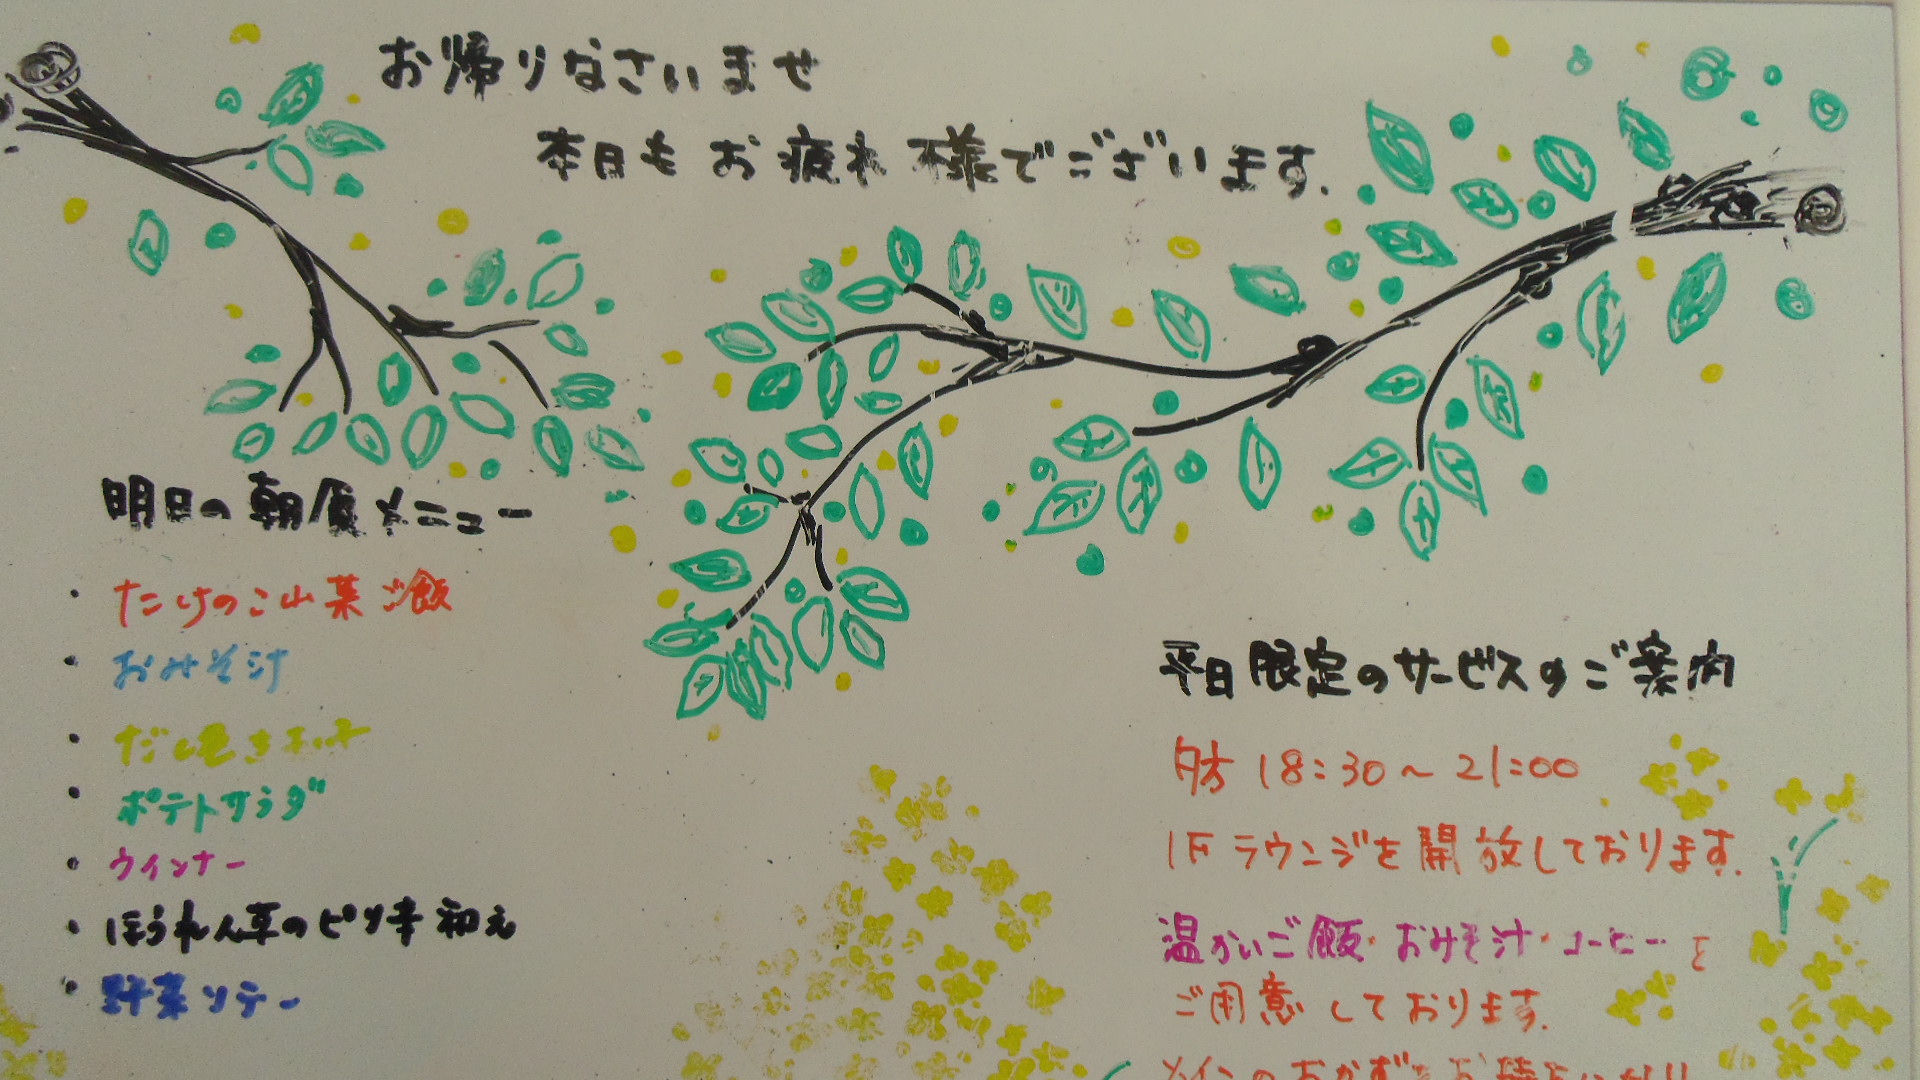 お帰りなさいませ
本日もお疲れ様でございます.
明日の朝食メニュー
・たけのこ山菜ご飯
・おみそ汁
・だし巻き
・ポテトサラダ
・ウインナー
・ほうれん草のピリ辛和え
・野菜ソテー
平日限定のサービスのご案内
夕方 18:30～21:00
1Fラウンジを開放しております.
温かいご飯・おみそ汁・コーヒーを
ご用意しております.
メインのおかずを